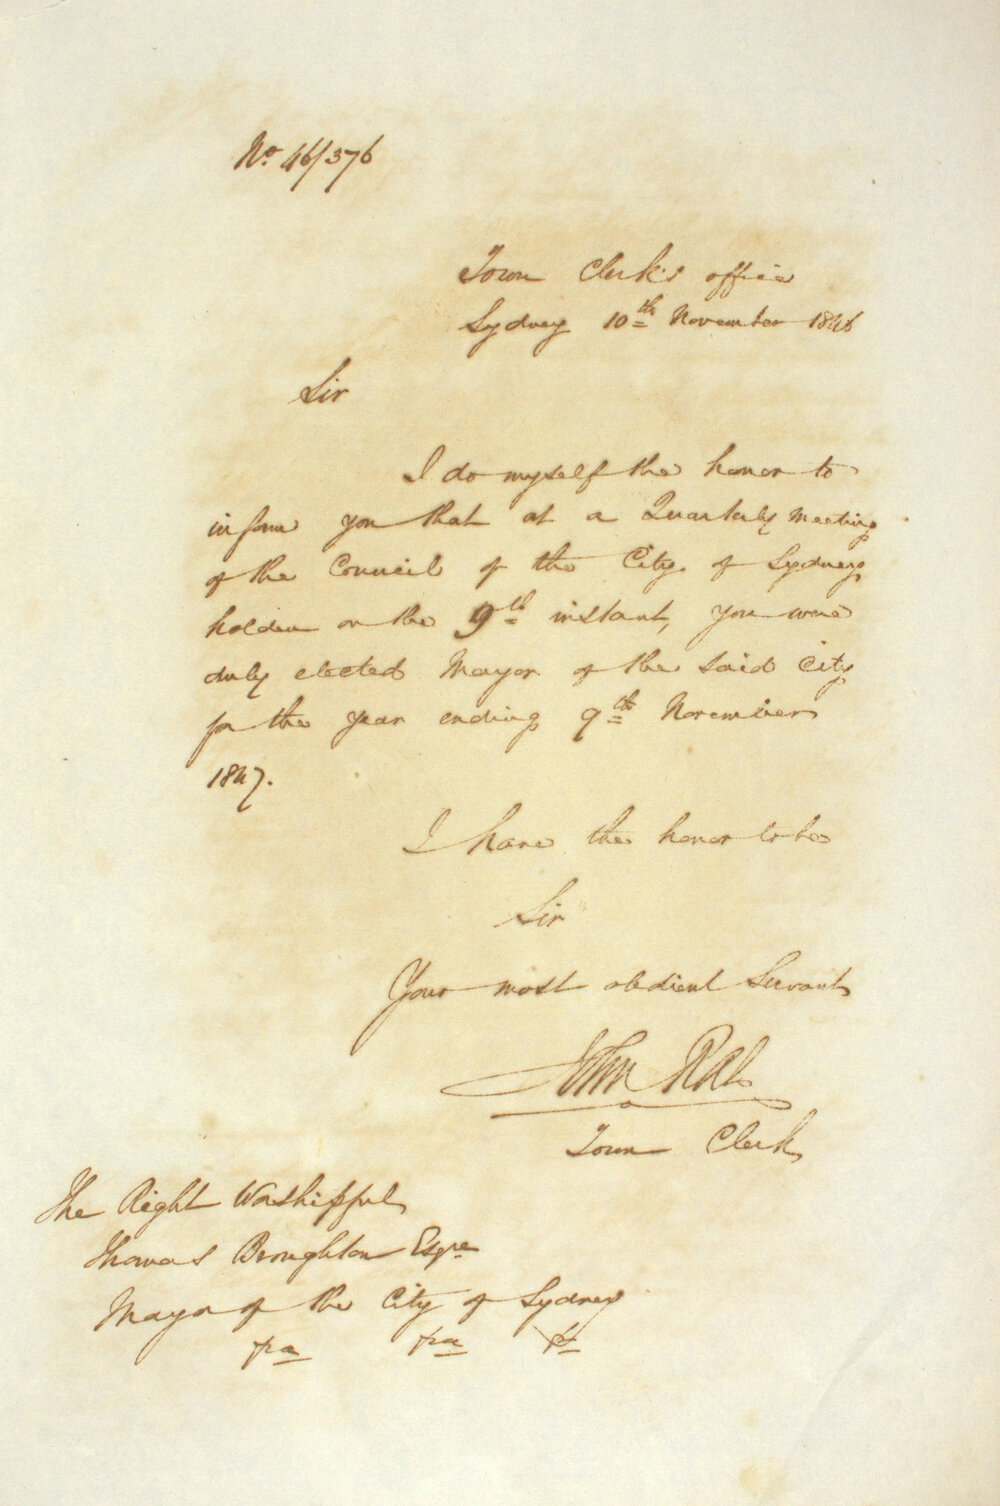 No. 46/376
Town Clerk's office
Sydney 10th November 1846
Sir
I do myself the honor to
inform you that at a Quarterly Meeting
of the Council of the City of Sydney
holden on the 9th instant, you were
duly elected Mayor of the said City
for the year ending 9th November
1847.
I have the honor to be
Sir
Your most obedient Servant
John Rae
Town Clerk
The Right Worshipful
Thomas Broughton Esqre
Mayor of the City of Sydney